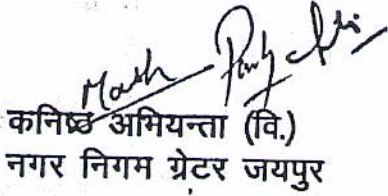 कनिष्ठ अभियन्ता (वि.)
नगर निगम ग्रेटर जयपुर